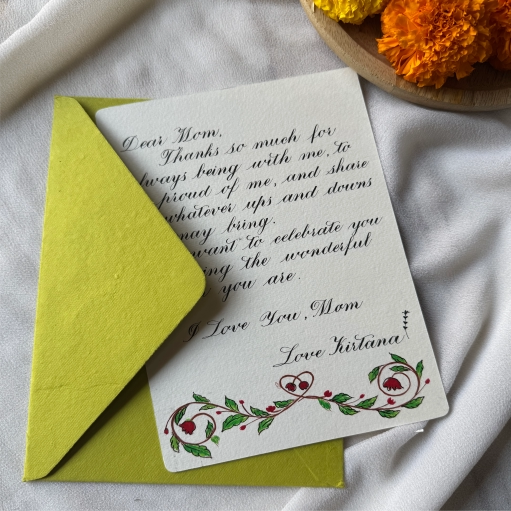 Dear Mom,
Thanks so much for
lways being with me, to
proud of me, and share
whatever ups and downs
may bring.
want to celebrate you
ing the wonderful
you are.
I Love You, Mom
Love Kirtana